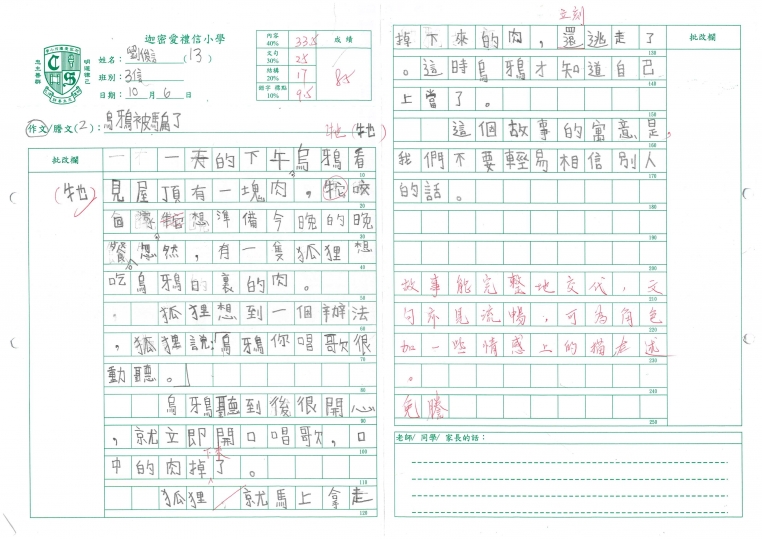 迦密愛禮信小學
姓名：劉俊言(13)
班別：3信
日期：10月6日
內容 40% 33.5
文句 30% 25
結構 20% 17
錯字 標點 10% 9.5
成績
85
作文/謄文(2)：烏鴉被騙了
批改欄
牠(牠)
一天的下午烏鴉看
見屋頂有一塊肉，牠咬
想準備今晚的晚
餐。忽然，有一隻狐狸想
吃烏鴉口裏的肉。
狐狸想到一個辦法
，狐狸說:「烏鴉你唱歌很
動聽。」
烏鴉聽到後很開心
，就立即開口唱歌，口
中的肉掉下來了。
狐狸就馬上拿走
(牠)
10
20
30
40
50
60
70
80
90
100
110
120
立刻
批改欄
掉下來的肉，還逃走了
。這時烏鴉才知道自己
上當了。
這個故事的寓意是，
我們不要輕易相信別人
的話。
故事能完整地交代，文
句亦見流暢，可為角色
加一些情感上的描述
。
免謄
130
140
150
160
170
180
190
200
210
220
230
240
250
老師/ 同學/ 家長的話：